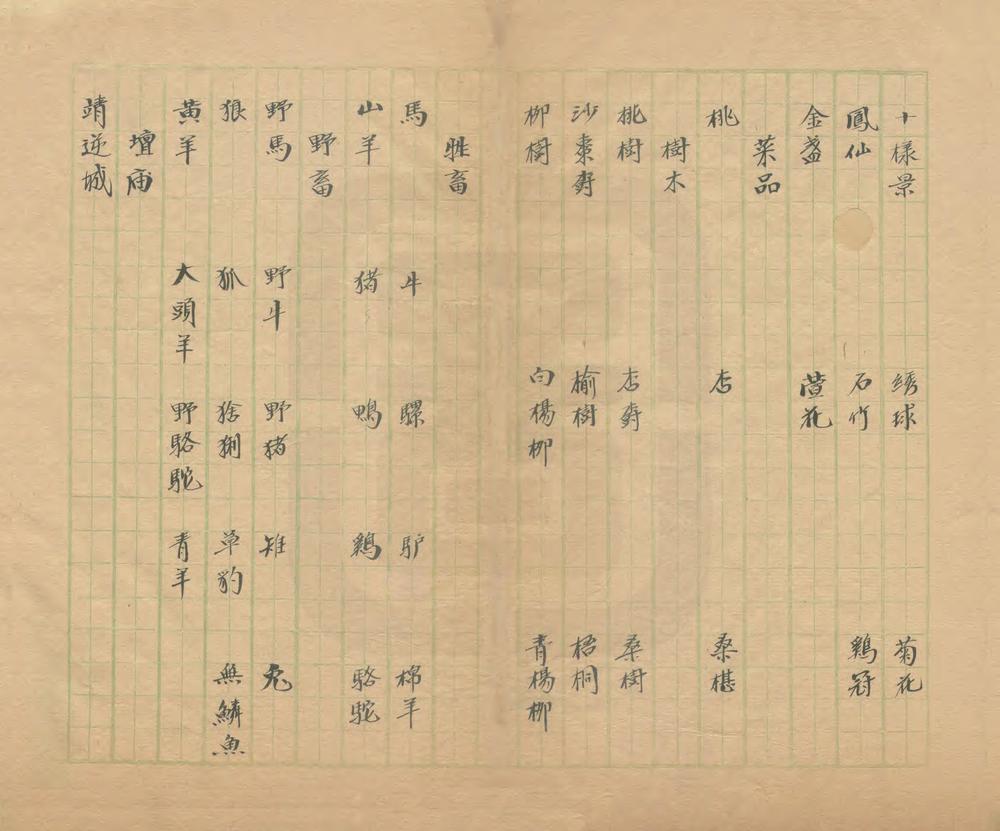 十樣景 绣球 菊花
鳳仙 石竹 鷄冠
金盞 萱花
菜品
桃 杏 桑椹
樹木
桃樹 杏樹 桑樹
沙棗樹 榆樹 梧桐
柳樹 白楊柳 青楊柳
牲畜
馬 牛 騾 驴 棉羊
山羊 猪 鴨 鷄 駱駝
野畜
野馬 野牛 野猪 雉 兔
狼 狐 猞猁 草豹 無鱗魚
黃羊 大頭羊 野駱駝 青羊
壇庙
靖逆城